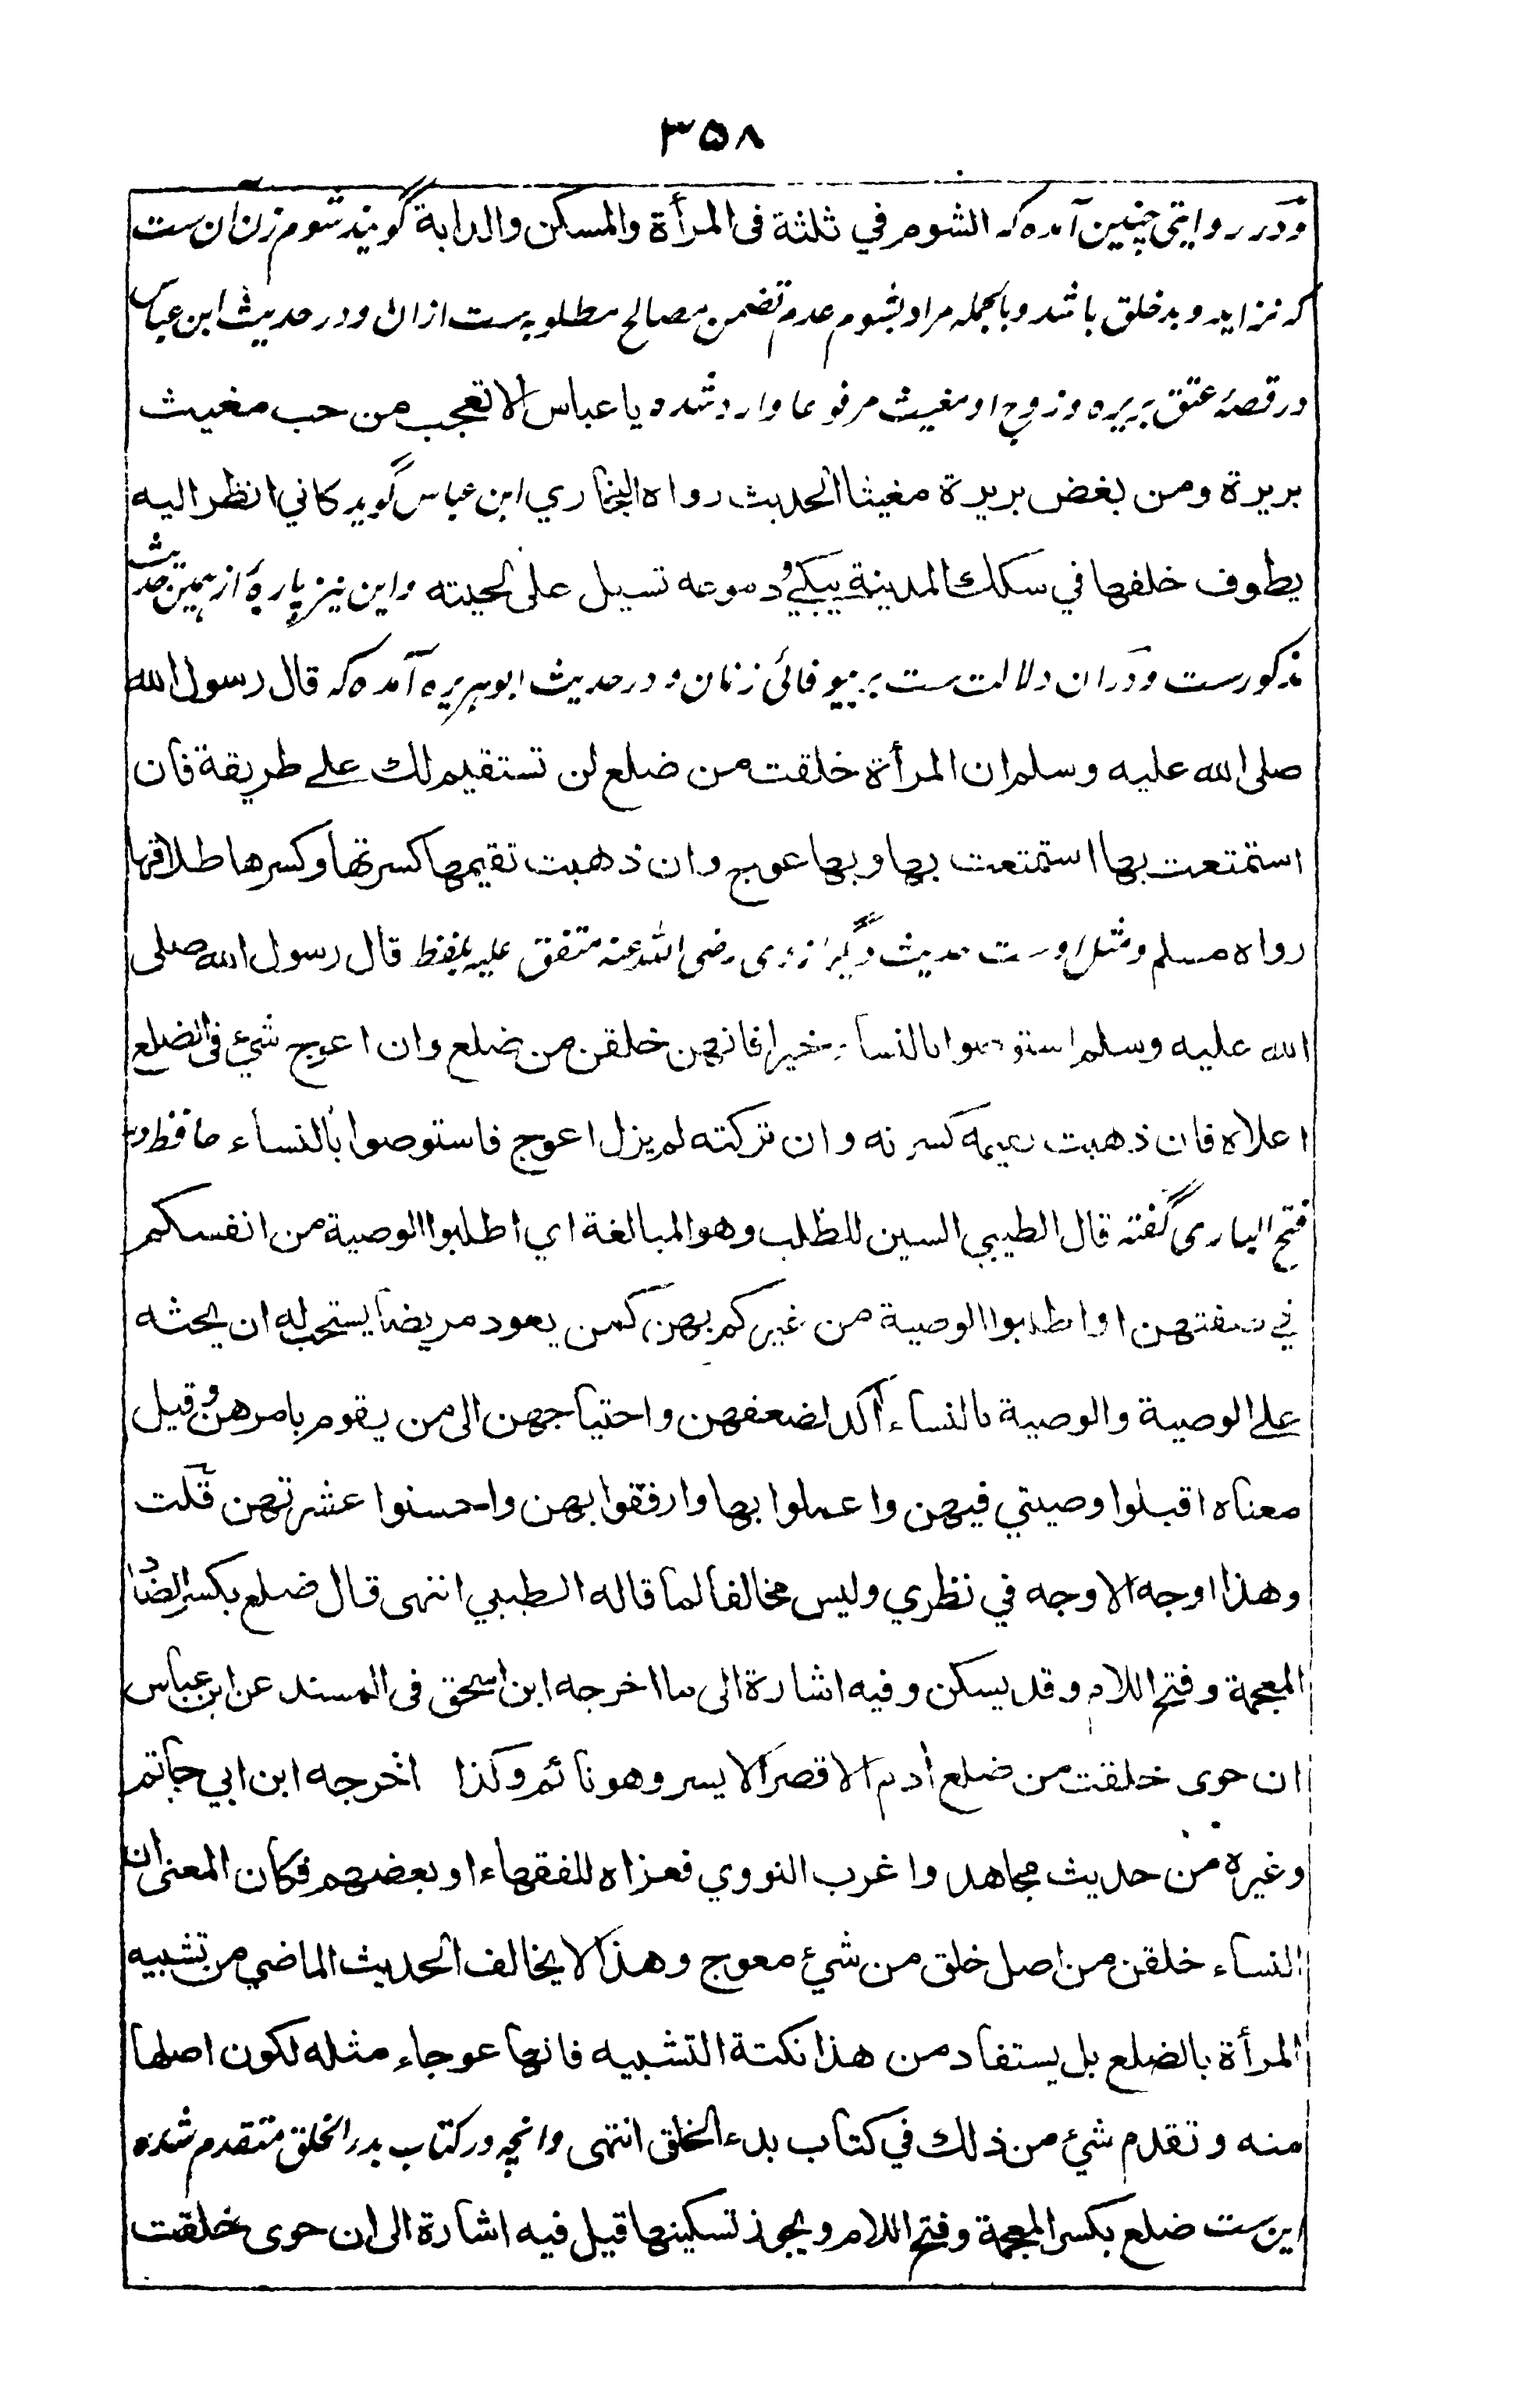 ۳۵۸
ودر روایتی چنین آمده که الشوم في ثلثة فى المرأة والمسکن والدابة گویند شوم زن ان ست
که نزاید و بد خلق باشد و بالجمله مراد بشوم عدم تضمن مصالح مطلوبه ست ازان ودر حدیث ابن عباس
در قصهٔ عتق بریره و زوج او مغیث مرفوعا وارد شده یا عباس الا تعجب من حب مغيث
بريرة ومن بغض بريرة مغيثا الحديث رواه البخاري ابن عباس گوید كاني انظر اليه
يطوف خلفها في سكك المدينة يبكي ودموعه تسيل على لحيته واین نیز پارهٔ از همین حدیث
مذکورست ودران دلالت ست بر بیوفائی زنان و در حدیث ابو هریره آمده که قال رسول الله
صلى الله عليه وسلم ان المرأة خلقت من ضلع لن تستقيم لك علے طريقة فان
استمتعت بها استمتعت بها وبها عوج وان ذهبت تقيمها كسرتها وكسرها طلاقها
رواه مسلم ومثل اوست حدیث دیگر از وی رضی الله عنه متفق علیه بلفظ قال رسول الله صلى
الله عليه وسلم استوصوا بالنساء خيرا فانهن خلقن من ضلع وان اعوج شئ فى الضلع
اعلاه فان ذهبت تقيمه كسرته وان تركته لم يزل اعوج فاستوصوا بالنساء حافظ در
فتح الباری گفته قال الطيبي السين للطلب وهو المبالغة اي اطلبوا الوصية من انفسكم
في حقهن او اطلبوا الوصية من غيركم بهن كمن يعود مريضا يستحب له ان يحثه
علے الوصية والوصية بالنساء آكد لضعفهن واحتياجهن الى من يقوم بامرهن وقيل
معناه اقبلوا وصيتي فيهن واعملوا بها وارفقوا بهن واحسنوا عشرتهن قلت
وهذا اوجه الاوجه في نظري وليس مخالفا لما قاله الطيبي انتهى قال ضلع بكسر الضاد
المعجمة وفتح اللام وقد يسكن وفيه اشارة الى ما اخرجه ابن اسحق فى المسند عن ابن عباس
ان حوى خلقت من ضلع أدم الاقصر الايسر وهو نائم وكذا اخرجه ابن ابي حاتم
وغيره من حديث مجاهد واغرب النووي فعزاه للفقهاء او بعضهم فكان المعنى ان
النساء خلقن من اصل خلق من شئ معوج وهذا لا يخالف الحديث الماضي من تشبيه
المرأة بالضلع بل يستفاد من هذا نكتة التشبيه فانها عوجاء مثله لكون اصلها
منه وتقدم شئ من ذلك في كتاب بدء الخلق انتهى وانچه در کتاب بدء الخلق متقدم شده
این ست ضلع بكسر المعجمة وفتح اللام ويجوز تسكينها قيل فيه اشارة الى ان حوى خلقت